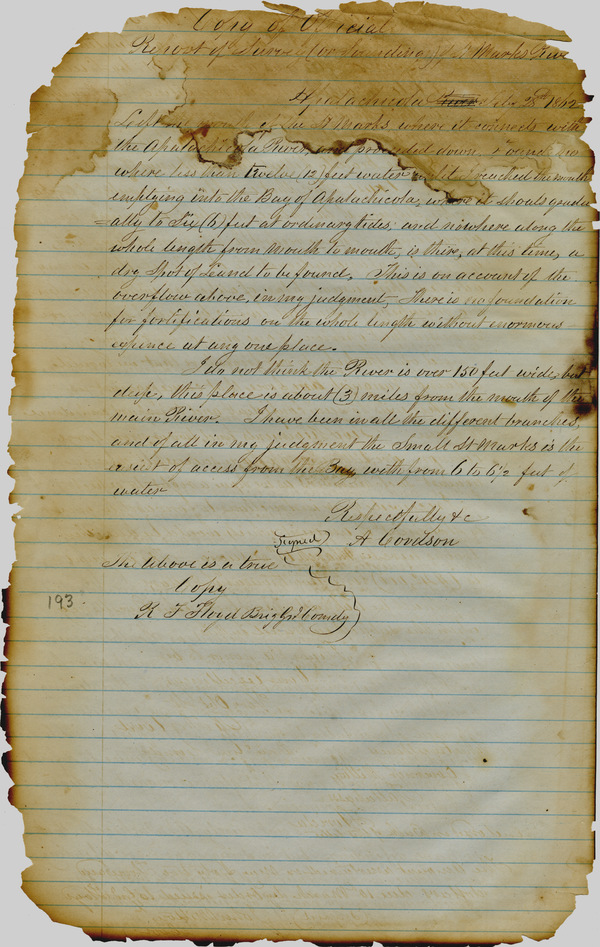 Copy of Official
Report of Survey (or Soundings) of St Marks River
Apalachicola Feby 28th 1862
Left the mouth of the St Marks where it connects with
the Apalachicola River, and proceeded down, + found no
where less than twelve (12) feet water until I reached the mouth
emptying into the Bay of Apalachicola, where it shoals gradu
=ally to Six (6) feet at ordinary tides; and nowhere along the
whole length from mouth to mouth, is there, at this time, a
dry Spot of Land to be found. This is on account of the
overflow above, in my judgment, There is no foundation
for fortifications on the whole length without enormous
expence at any one place.
I do not think the River is over 150 feet wide, but
deep, this place is about (3) miles from the mouth of the
main River. I have been in all the different branches,
and of all in my judgment the Small St Marks is the
easiest of access from the Bay with from 6 to 6½ feet of
water
Respectfully &c
(Signed) A
The above is a true
Copy
193.
R F Floyd Brig Gnl Comdg